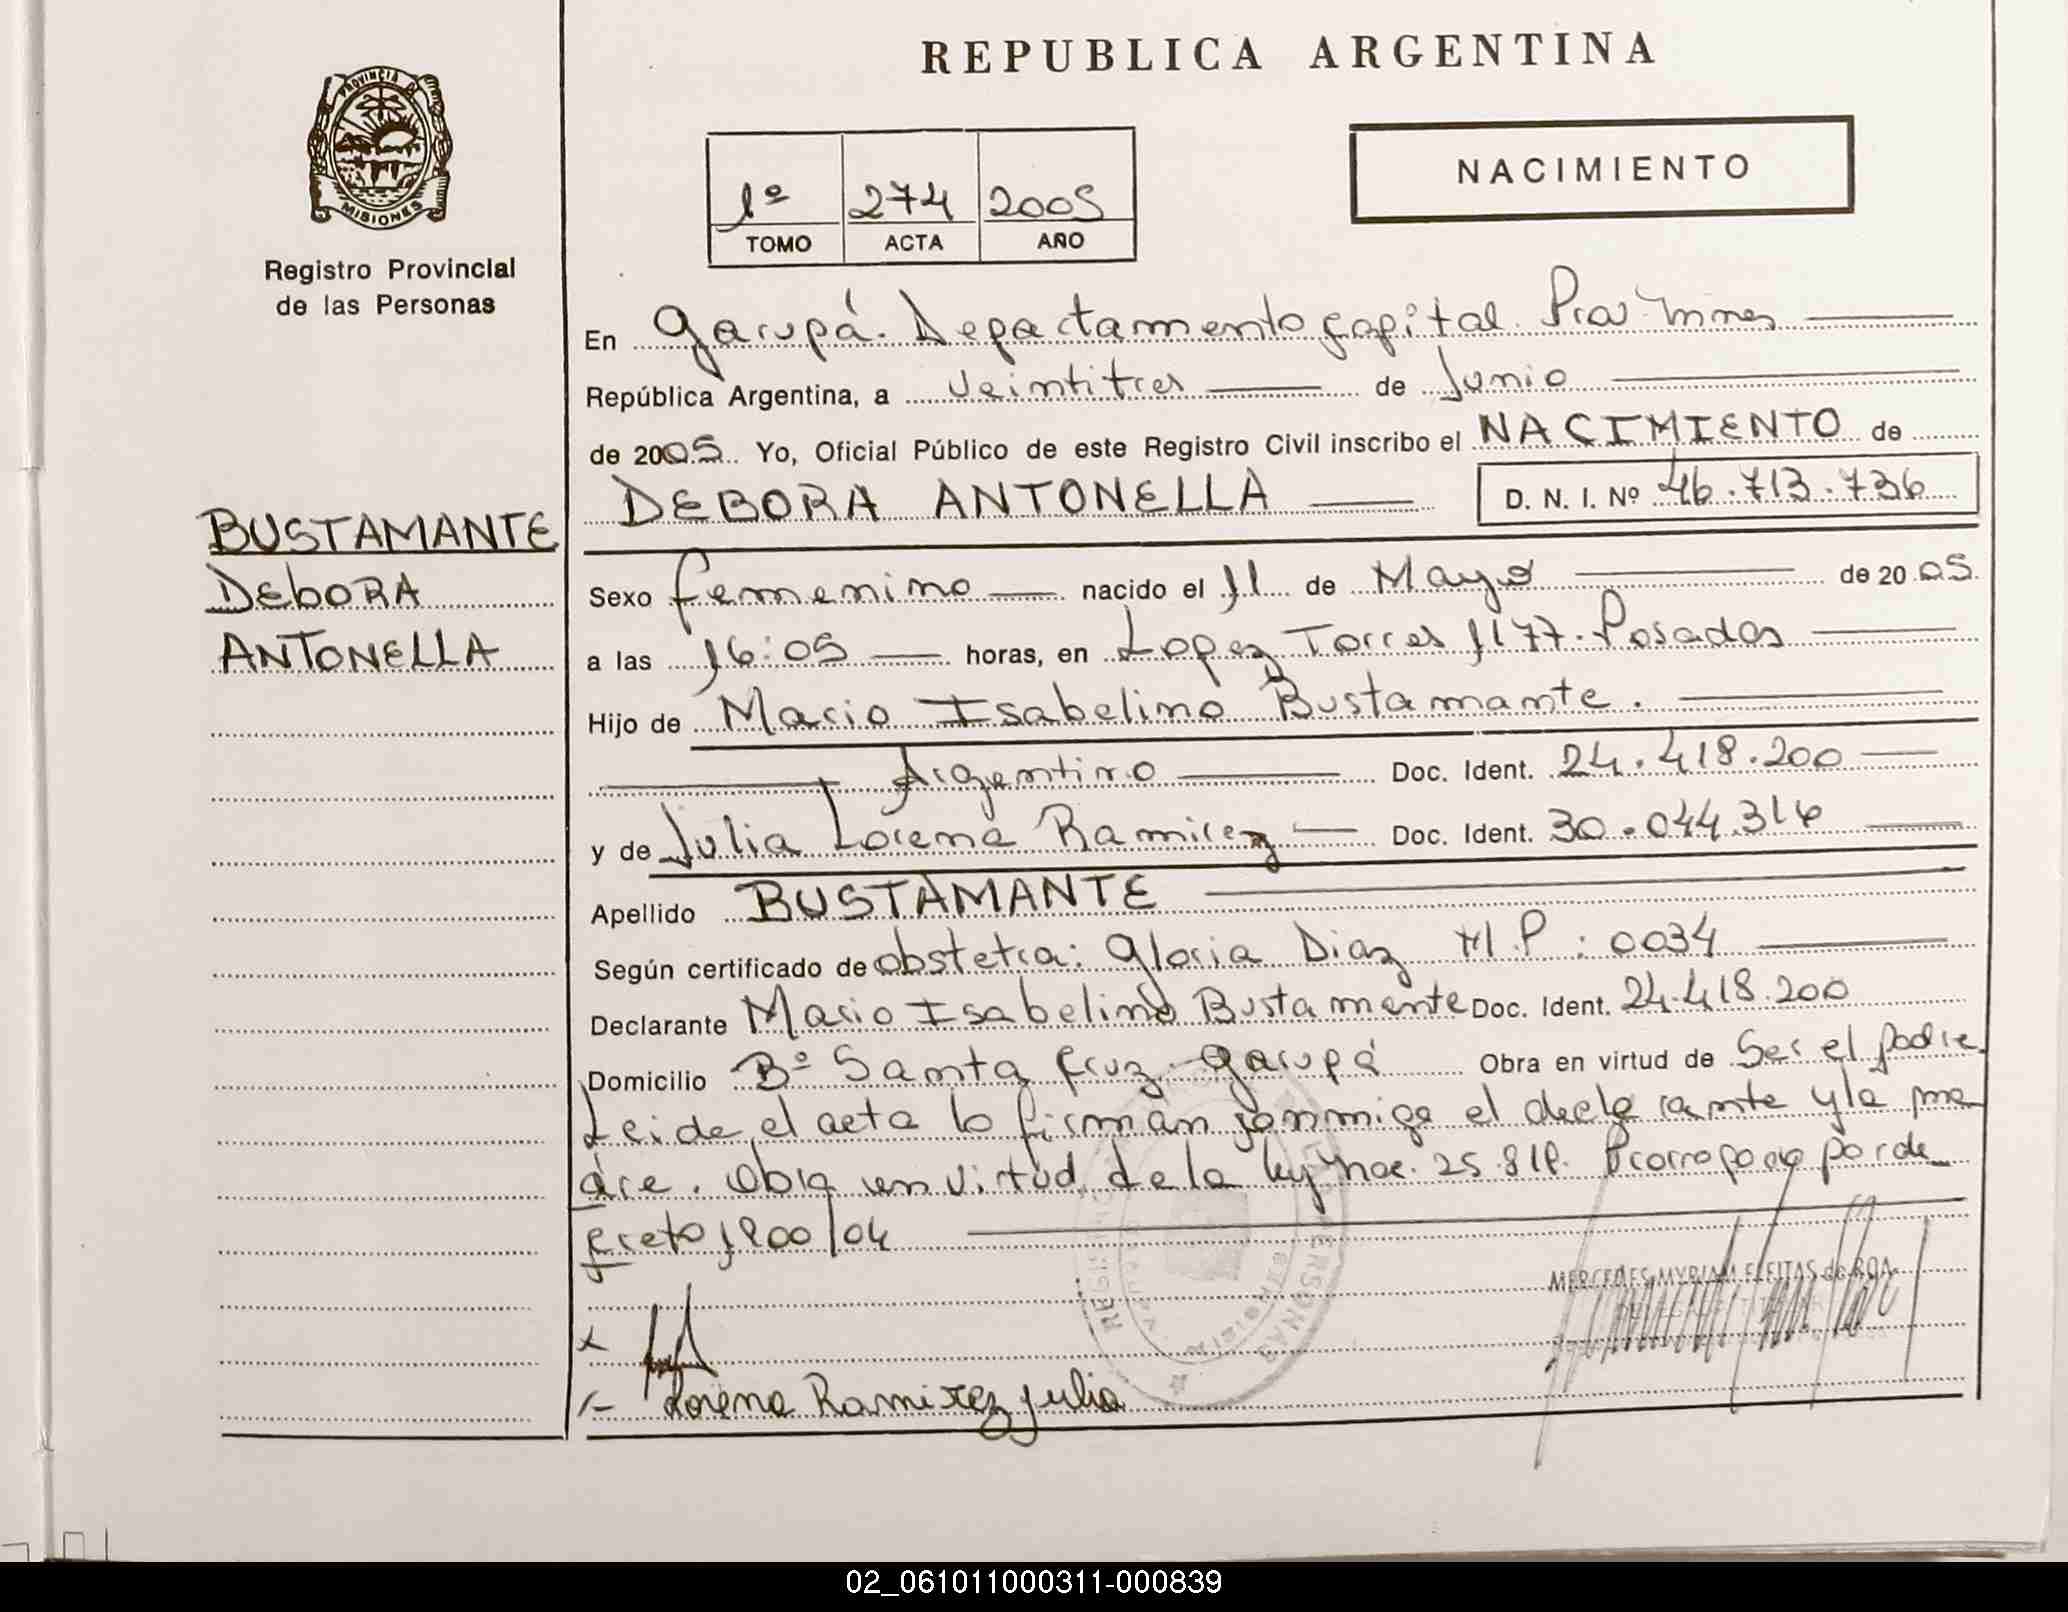 REPUBLICA ARGENTINA
PROVINCIA DE
MISIONES
Registro Provincial
de las Personas
1º 274 2005
TOMO ACTA AÑO
NACIMIENTO
En Garupá. Departamento Capital. Pcia. Mnes
República Argentina, a veintitres de Junio
de 2005 Yo, Oficial Público de este Registro Civil inscribo el NACIMIENTO de
DEBORA ANTONELLA D. N. I. Nº 46.713.736
BUSTAMANTE
DEBORA
ANTONELLA
Sexo femenino nacido el 11 de Mayo de 2005
a las 16:05 horas, en Lopez Torres 1177. Posadas
Hijo de Mario Isabelino Bustamante.
Argentino Doc. Ident. 24.418.200
y de Julia Lorena Ramirez Doc. Ident. 30.044.316
Apellido BUSTAMANTE
Según certificado de obstetra: Gloria Diaz M.P: 0034
Declarante Mario Isabelino Bustamante Doc. Ident. 24.418.200
Domicilio Bº Santa Cruz - Garupá Obra en virtud de Ser el padre
Leida el acta lo firman conmigo el declarante y la ma
dre. Obra en virtud de la ley nac. 25.819. Prorroga por de
creto 1200/04
MERCEDES MYRIAM FLEITAS de ROA
Lorena Ramirez Julia
02_061011000311-000839